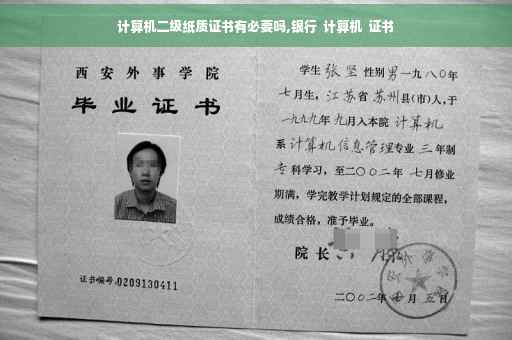 计算机二级纸质证书有必要吗,银行 计算机 证书
西安外事学院
毕业证书
证书编号:0209130411
学生 张坚 性别 男 一九八〇年
七月生，江苏省 苏州县(市)人,于
一九九九年 九月入本院 计算机
系 计算机信息管理专业 三 年制
专 科学习，至二〇〇二年 七月修业
期满，学完教学计划规定的全部课程，
成绩合格，准予毕业。
院长
二〇〇二年 月 五日